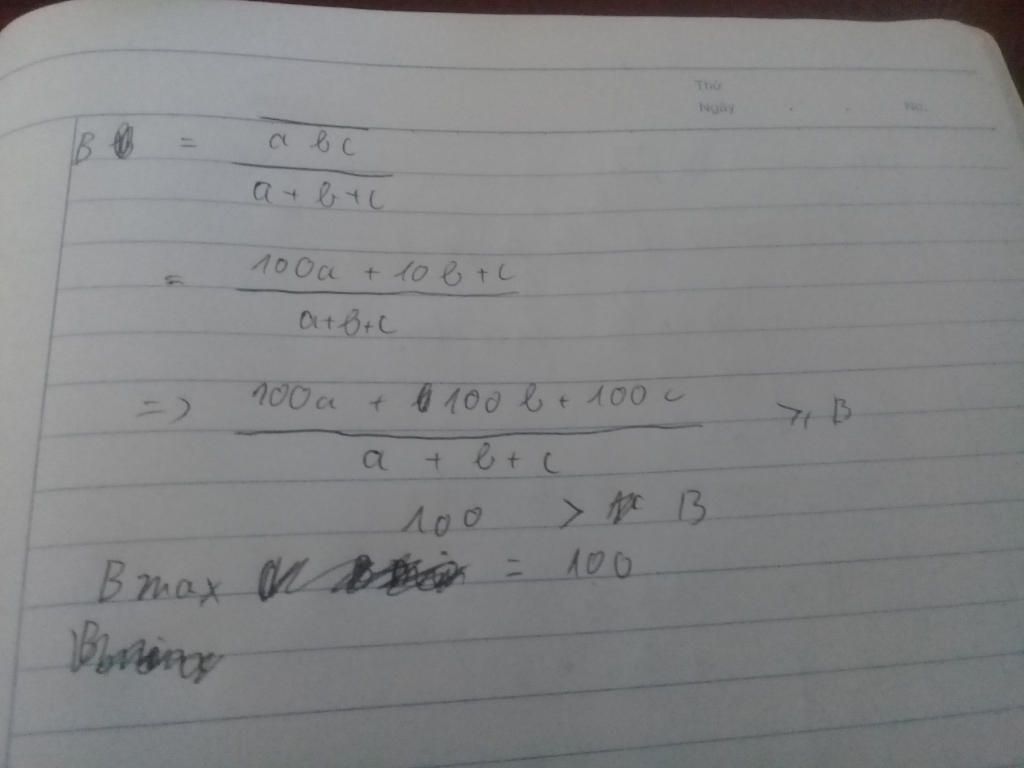 Thứ
Ngày . . No.
B = abc
a + b + c
= 100a + 10b + c
a+b+c
=> 100a + 100b + 100c ≥ B
a + b + c
100 > B
B max = 100